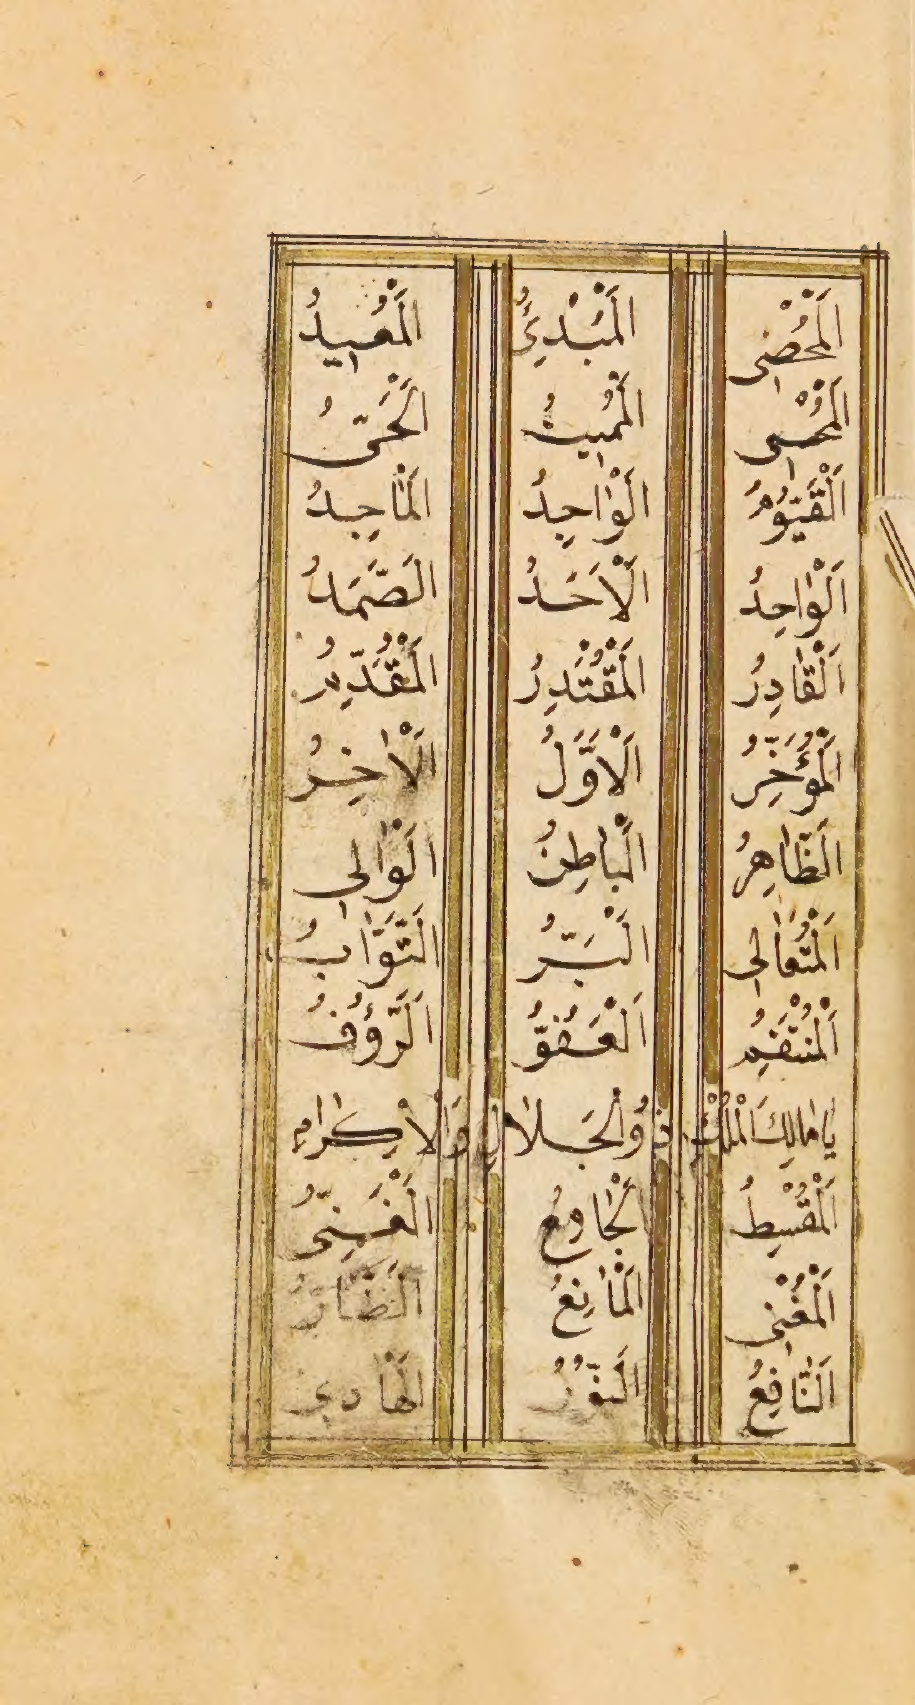 اَلْمُحْصِى اَلْمُبْدِئُ اَلْمُعِيدُ
اَلْمُحْيِى اَلْمُمِيتُ اَلْحَىُّ
اَلْقَيُّومُ اَلْوَاجِدُ اَلْمَاجِدُ
اَلْوَاحِدُ اَلْاَحَدُ اَلصَّمَدُ
اَلْقَادِرُ اَلْمُقْتَدِرُ اَلْمُقَدِّمُ
اَلْمُؤَخِّرُ اَلْاَوَّلُ اَلْاٰخِرُ
اَلظَّاهِرُ اَلْبَاطِنُ اَلْوَالِى
اَلْمُتَعَالِى اَلْبَرُّ اَلتَّوَّابُ
اَلْمُنْتَقِمُ اَلْعَفُوُّ اَلرَّؤُفُ
يَا مَالِكَ الْمُلْكِ ذُو الْجَلَالِ وَالْاِكْرَامِ
اَلْمُقْسِطُ اَلْجَامِعُ اَلْغَنِىُّ
اَلْمُغْنِى اَلْمَانِعُ اَلضَّارُّ
اَلنَّافِعُ اَلنُّورُ اَلْهَادِى